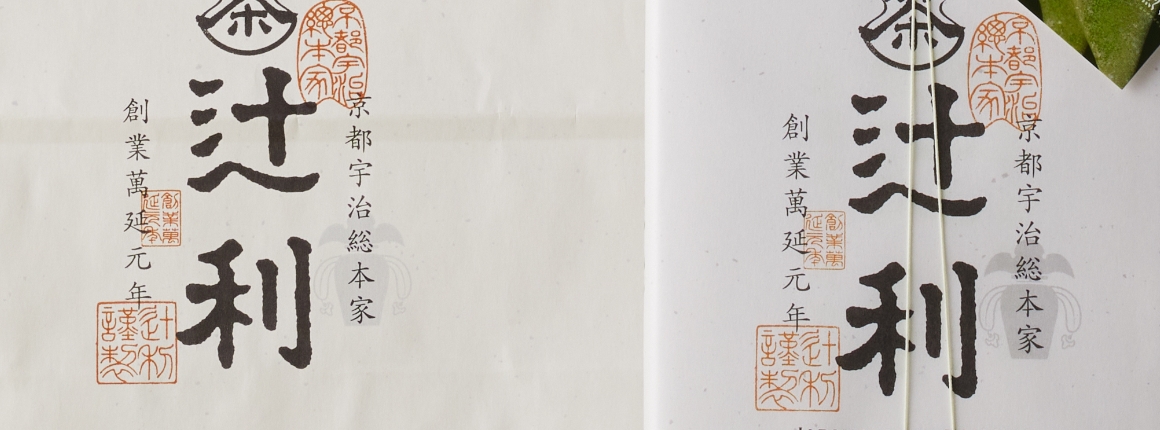 茶
京都宇治総本家
京都宇治總本家
辻利
創業萬延元年
創業萬延元年
辻利謹製
茶
京都宇治総本家
京都宇治總本家
辻利
創業萬延元年
創業萬延元年
辻利謹製